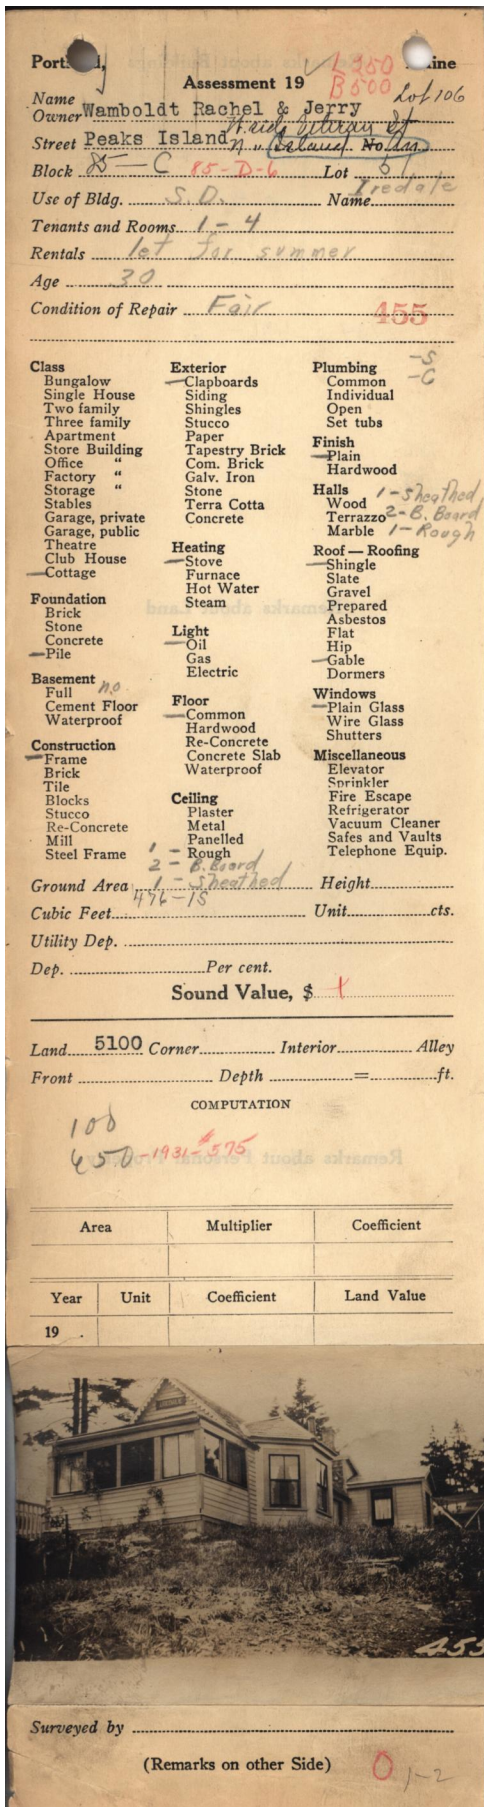 Portland, Maine
L 250
Assessment 19
B 500
Lot 106
Name
Owner Wamboldt Rachel & Jerry
Street Peaks Island No.
Block 85-C 85-D-6 Lot 5
Iredale
Use of Bldg. S.D. Name
Tenants and Rooms 1-4
Rentals let for summer
Age 30
Condition of Repair Fair 455
Class
Bungalow
Single House
Two family
Three family
Apartment
Store Building
Office "
Factory "
Storage "
Stables
Garage, private
Garage, public
Theatre
Club House
Cottage
Foundation
Brick
Stone
Concrete
Pile
Basement
Full no
Cement Floor
Waterproof
Construction
Frame
Brick
Tile
Blocks
Stucco
Re-Concrete
Mill
Steel Frame
Exterior
Clapboards
Siding
Shingles
Stucco
Paper
Tapestry Brick
Com. Brick
Galv. Iron
Stone
Terra Cotta
Concrete
Heating
Stove
Furnace
Hot Water
Steam
Light
Oil
Gas
Electric
Floor
Common
Hardwood
Re-Concrete
Concrete Slab
Waterproof
Ceiling
Plaster
Metal
Panelled
1 - Rough
2 - B. Board
1 - Sheathed
Plumbing
-S
Common -C
Individual
Open
Set tubs
Finish
Plain
Hardwood
Halls 1-Sheathed
Wood
Terrazzo 2-B. Board
Marble 1-Rough
Roof — Roofing
Shingle
Slate
Gravel
Prepared
Asbestos
Flat
Hip
Gable
Dormers
Windows
Plain Glass
Wire Glass
Shutters
Miscellaneous
Elevator
Sprinkler
Fire Escape
Refrigerator
Vacuum Cleaner
Safes and Vaults
Telephone Equip.
Ground Area Height
476-1S
Cubic Feet Unit cts.
Utility Dep.
Dep. Per cent.
Sound Value, $
Land 5100 Corner Interior Alley
Front Depth = ft.
COMPUTATION
100
450-1931-$575
Area Multiplier Coefficient
Year Unit Coefficient Land Value
19 .
455
Surveyed by
(Remarks on other Side) O 1-2